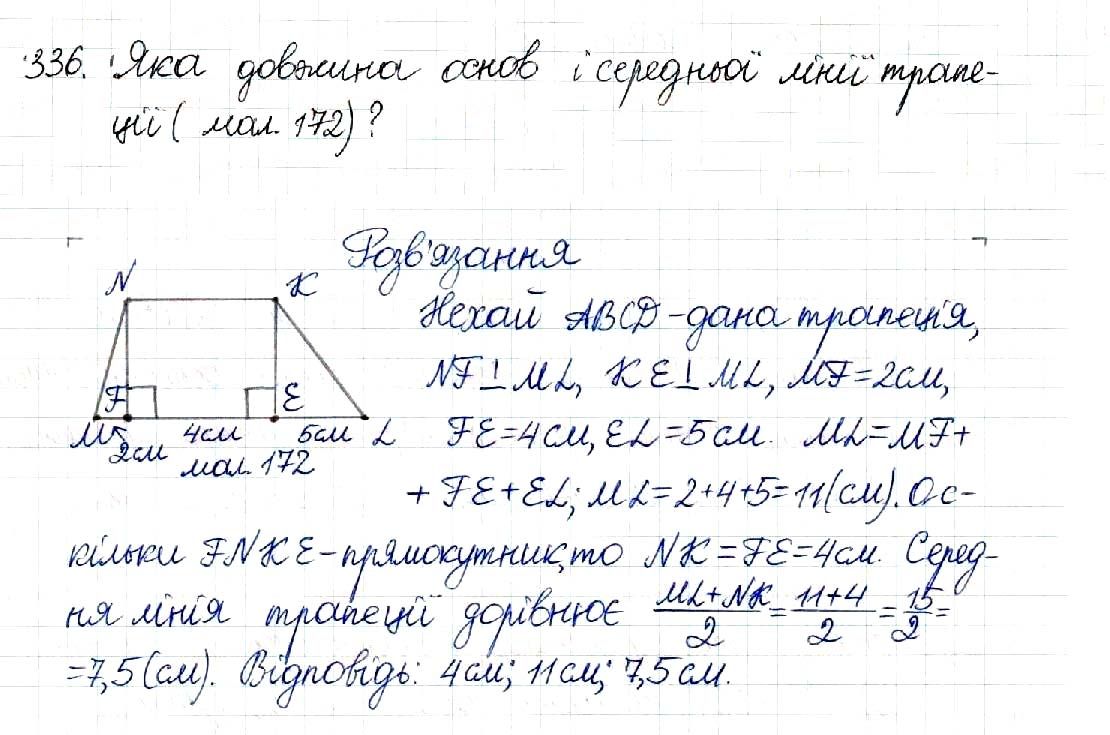 336. Яка довжина основ і середньої лінії трапе-
ції ( мал. 172) ?
Розв'язання
N K
Нехай ABCD - дана трапеція,
NF ⊥ ML, KE ⊥ ML, MF = 2см,
F E
M 2см 4см 5см L
FE = 4см, EL = 5см. ML = MF +
мал. 172
+ FE + EL; ML = 2+4+5 = 11(см). Ос-
кільки FNKE - прямокутник, то NK = FE = 4см. Серед-
ня лінія трапеції дорівнює (ML + NK)/2 = (11 + 4)/2 = 15/2 =
= 7,5 (см). Відповідь: 4см; 11см; 7,5см.